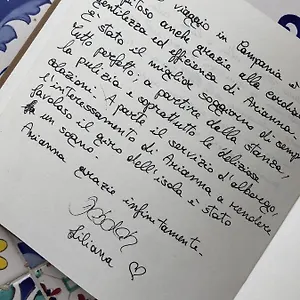 viaggio in Campania è
anche grazie alla
gentilezza ed efficienza di Arianna
è stato il miglior soggiorno di sempre
Tutto perfetto; a partire dalla stanza,
la pulizia e soprattutto le deliziose
colazioni. A parte il servizio d'albergo,
l'interessamento di Arianna a rendere
favoloso il giro dell'isola è stato
un sogno.
Arianna grazie infinitamente.
Liliana